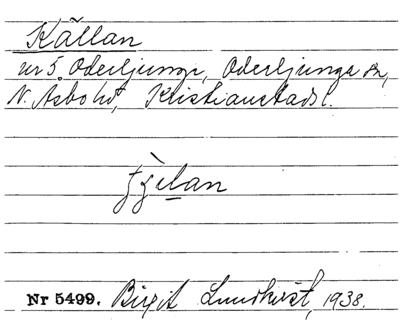 Källan
nr 5 Oderljunga, Oderljunga sn,
N. Åsbo hd, Kristianstads l.
Nr 5499. Birgit Lundkvist, 1938.